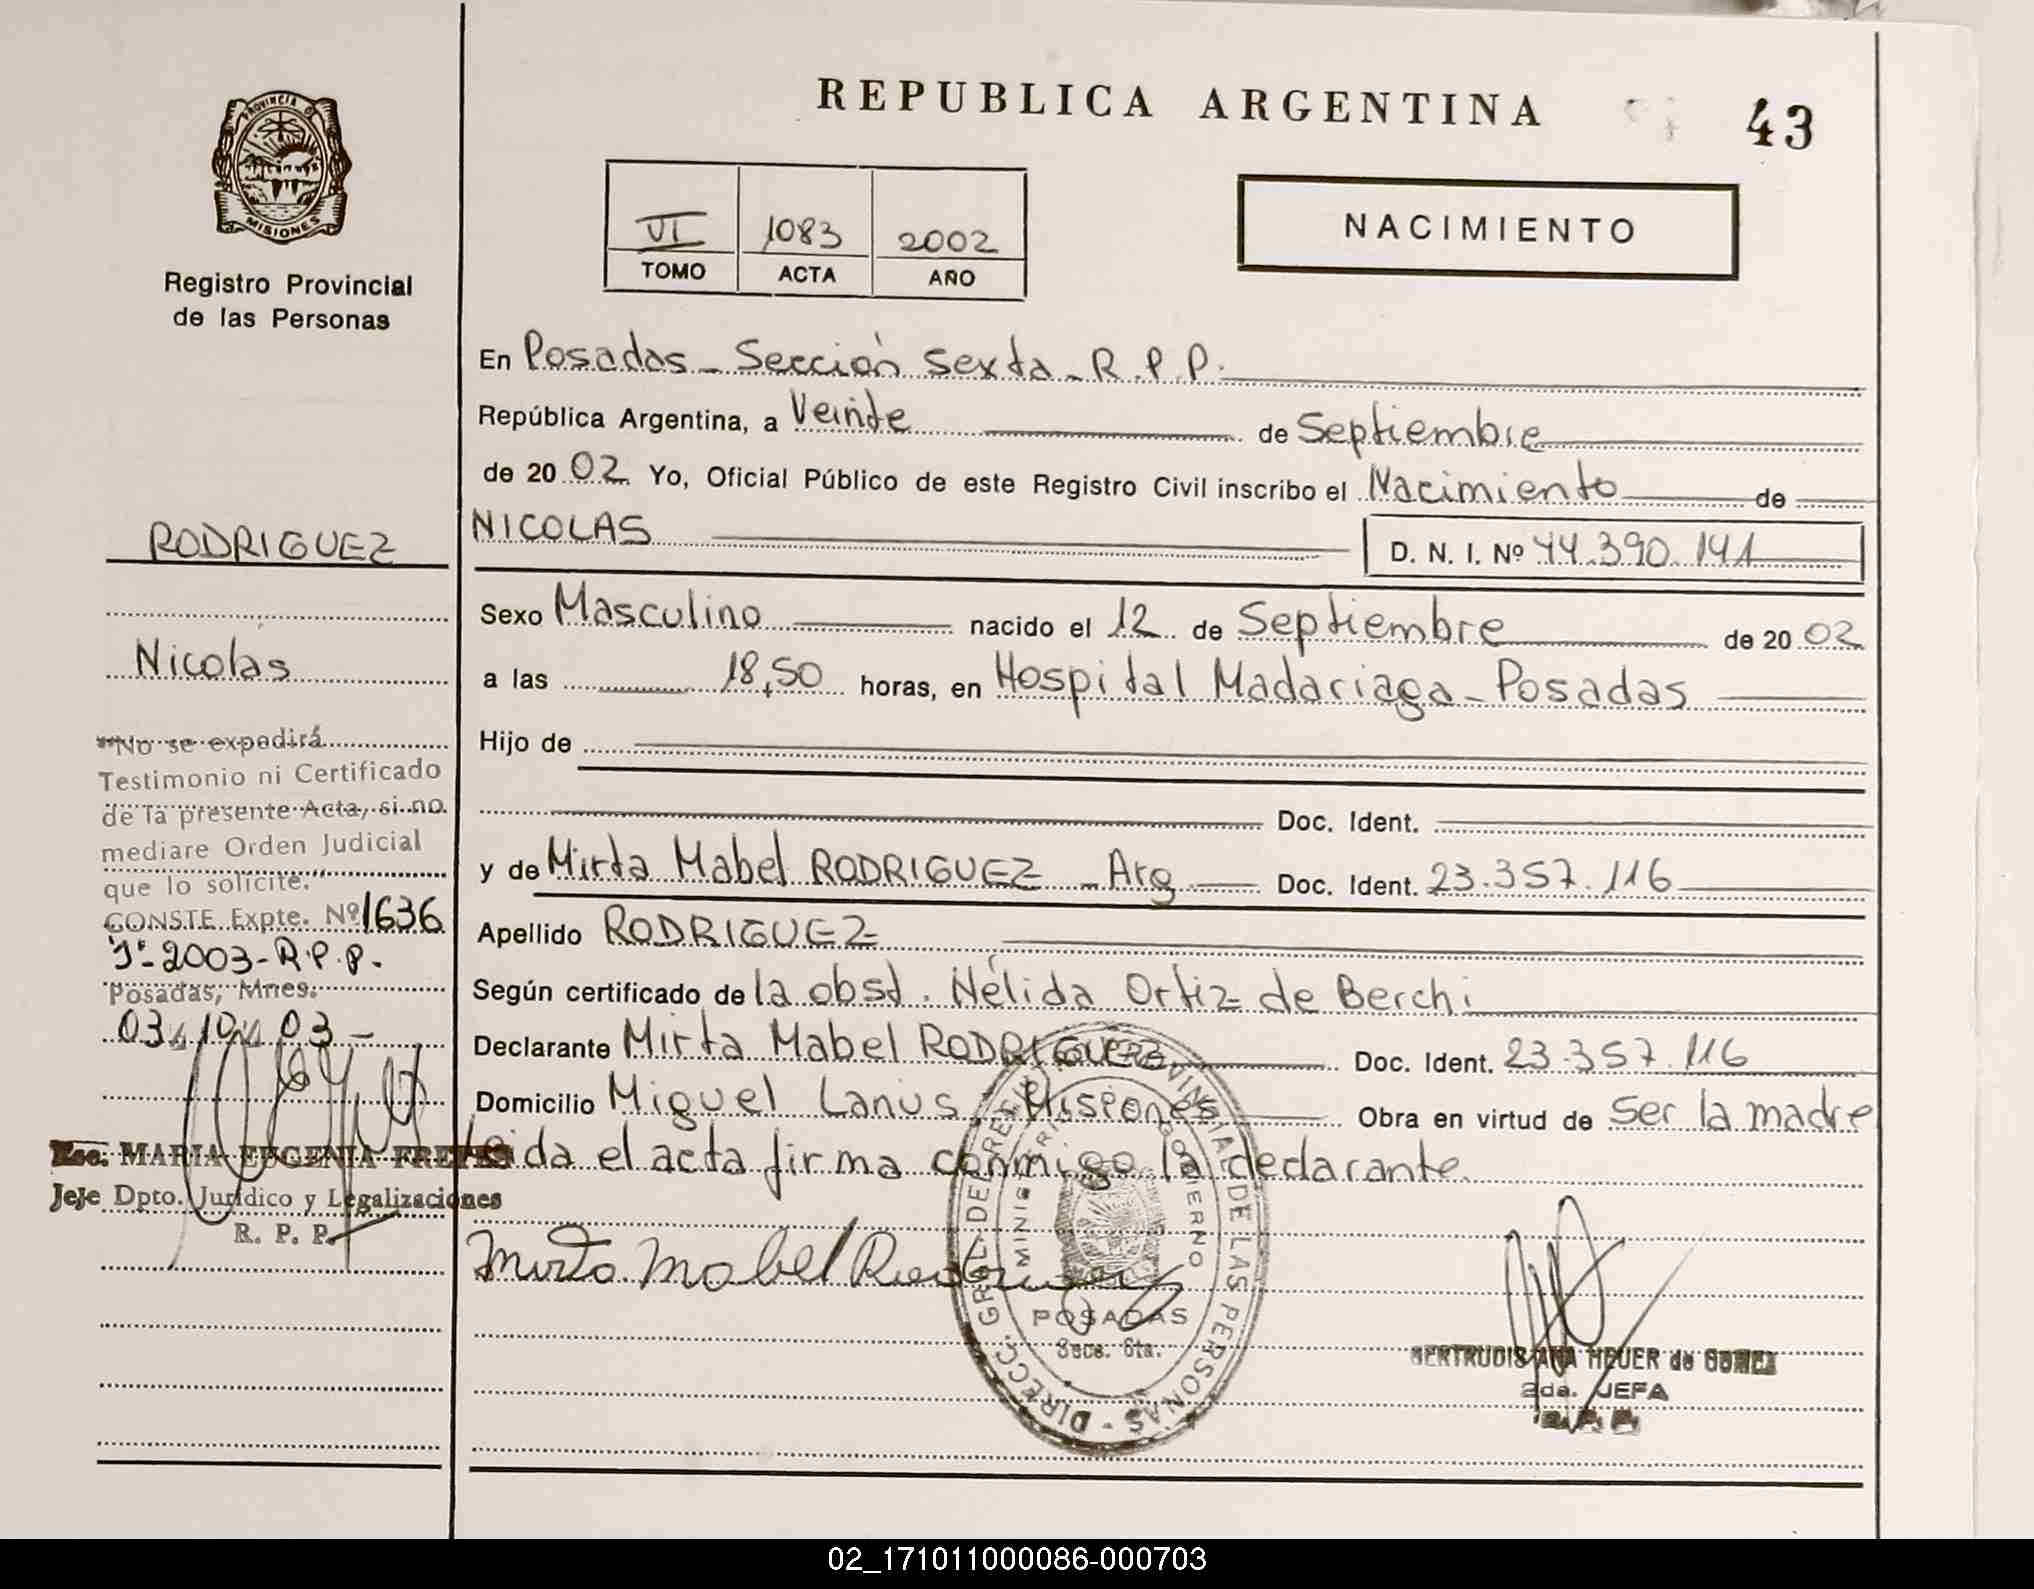 REPUBLICA ARGENTINA
43
PROVINCIA DE
MISIONES
Registro Provincial
de las Personas
VI 1083 2002
TOMO ACTA AÑO
NACIMIENTO
En Posadas - Sección Sexta - R.P.P.
República Argentina, a Veinte de Septiembre
de 2002 Yo, Oficial Público de este Registro Civil inscribo el Nacimiento de
NICOLAS D. N. I. Nº 44.390.141
Sexo Masculino nacido el 12 de Septiembre de 2002
a las 18,50 horas, en Hospital Madariaga - Posadas
Hijo de
Doc. Ident.
y de Mirta Mabel RODRIGUEZ - Arg Doc. Ident. 23.357.116
Apellido RODRIGUEZ
Según certificado de la obst. Nélida Ortiz de Berchi
Declarante Mirta Mabel RODRIGUEZ Doc. Ident. 23.357.116
Domicilio Miguel Lanus - Misiones Obra en virtud de Ser la madre
Leida el acta firma conmigo la declarante.
Mirta Mabel Rodriguez
RODRIGUEZ
Nicolás
"No se expedirá
Testimonio ni Certificado
de la presente Acta, si no
mediare Orden Judicial
que lo solicite."
CONSTE Expte. Nº 1636
"J"-2003-R.P.P.
Posadas, Mnes.
03 10 03
Esc. MARIA EUGENIA
Jefe Dpto. Jurídico y Legalizaciones
R. P. P.
DIRECC. GRAL. DEL REGISTRO PROVINCIAL DE LAS PERSONAS
MINISTERIO GOBIERNO
POSADAS
Secc. 6ta.
GERTRUDIS ANA HEUER de GOMEZ
2da. JEFA
R. P. P.
02_171011000086-000703